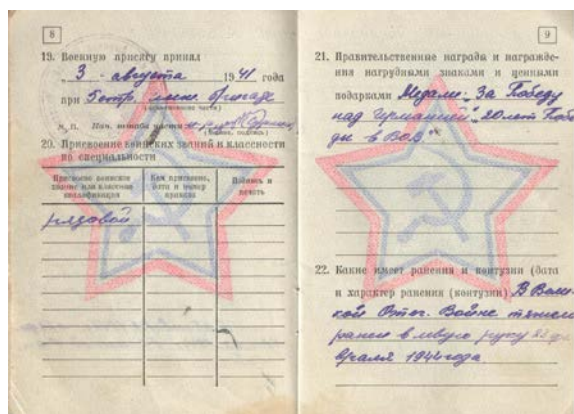 8
19. Военную присягу принял
3 августа 1941 года
при 5 отр. бригаде
(наименование части)
М. П. Нач. штаба части
(подпись)
20. Присвоение воинских званий и классности
по специальности
Присвоено воинское звание или классная квалификация
Кем присвоено, дата и номер приказа
Подпись и печать
рядовой
9
21. Правительственные награды и награжде-
ния нагрудными знаками и ценными
подарками Медали: За Победу
над Германией", 20 лет Побе
ды в ВОВ"
22. Какие имеет ранения и контузии (дата
и характер ранения (контузии) В Вели-
кой Отеч. Войне тяжело
ранен в левую руку 23 фе
враля 1944 года